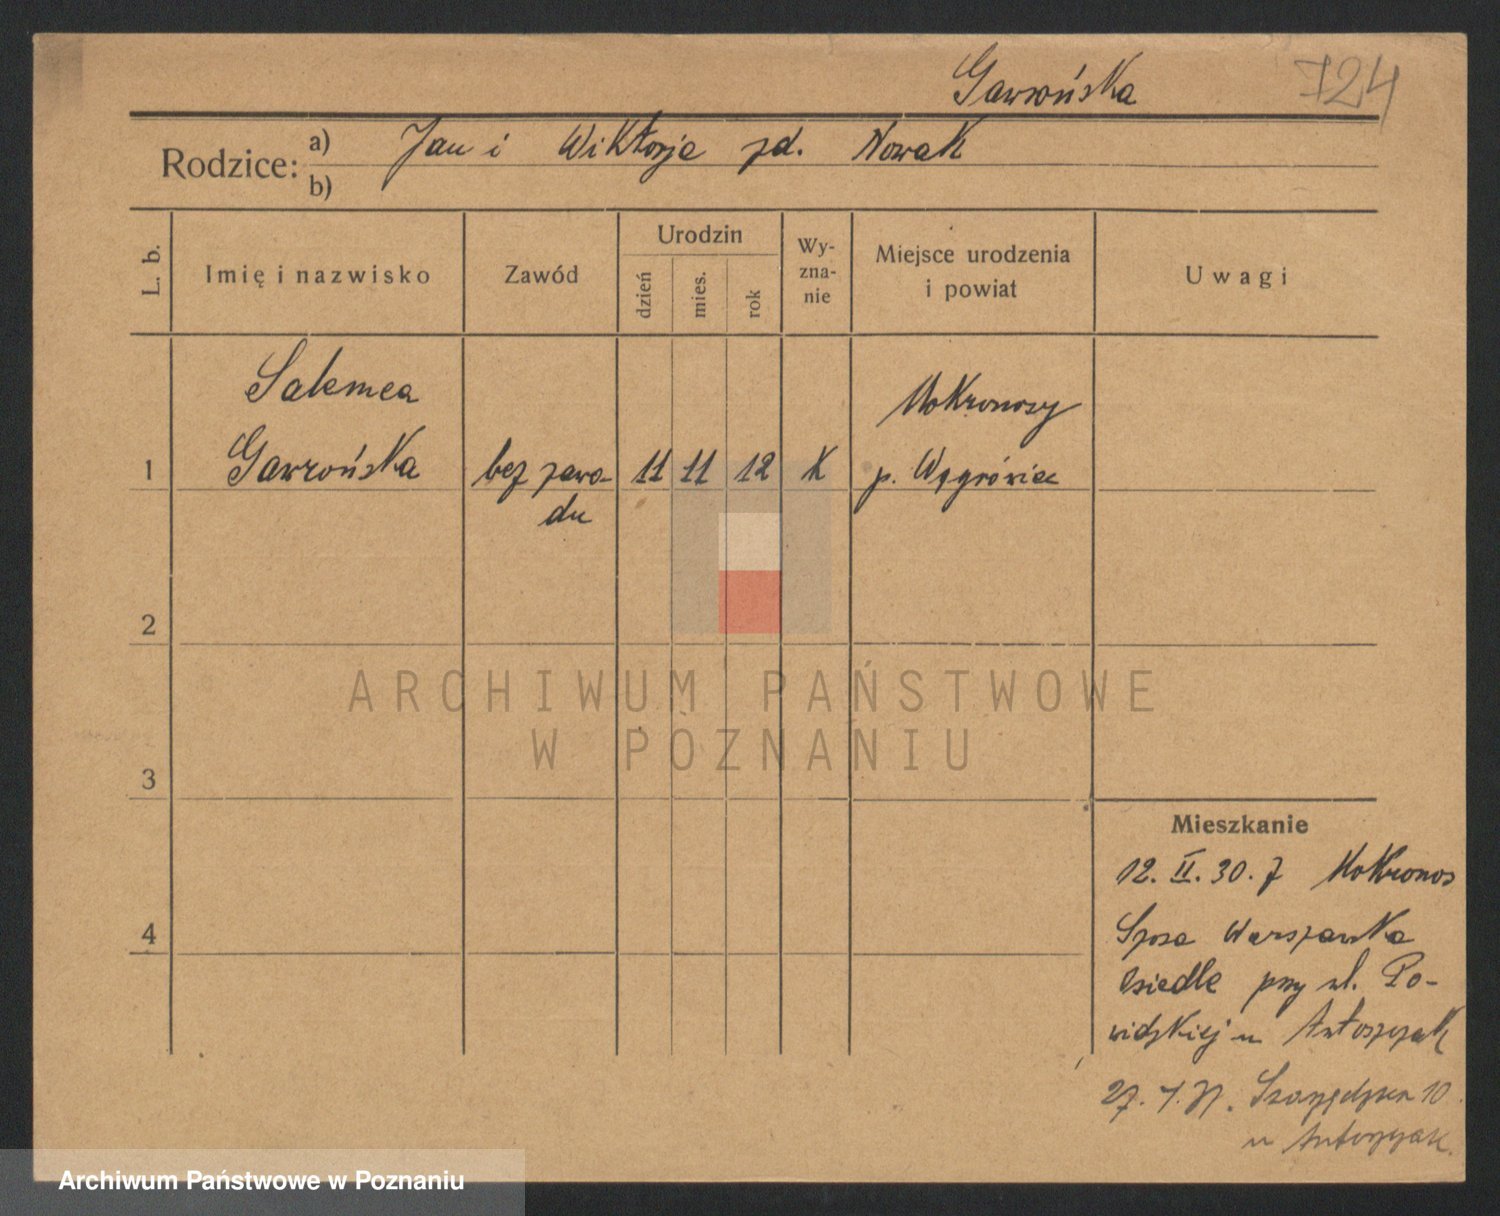 Gawrońska 724
Rodzice: a) Jan i Wiktorja zd. Nowak
b)
L. b. Imię i nazwisko Zawód Urodzin dzień mies. rok Wy-zna-nie Miejsce urodzenia i powiat Uwagi
Salomea Mokronosy
1 Gawrońska bez zawo- 11 11 12 K p. Wągrówiec
du
2
ARCHIWUM PAŃSTWOWE
W POZNANIU
3
Mieszkanie
12. II. 30. z Mokronos
Szosa Warszawka
4
Osiedle przy ul. Po-
widzkiej u Antoszczak
27. 31. 10
u
Archiwum Państwowe w Poznaniu